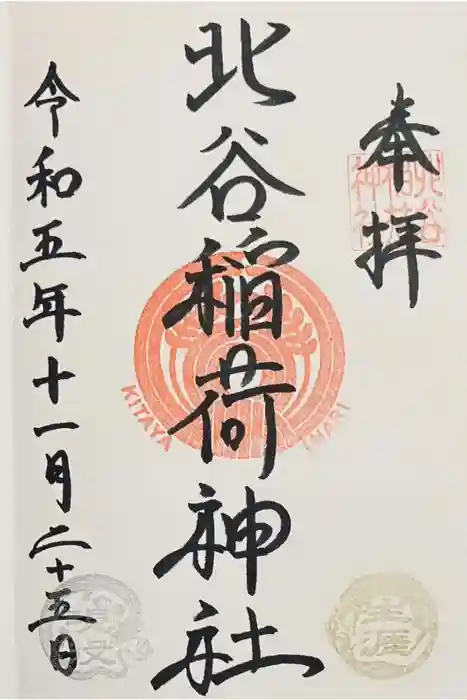 奉拝
北谷稲荷神社
北谷稲荷神社
KITAYA INARI
令和五年十一月二十五日